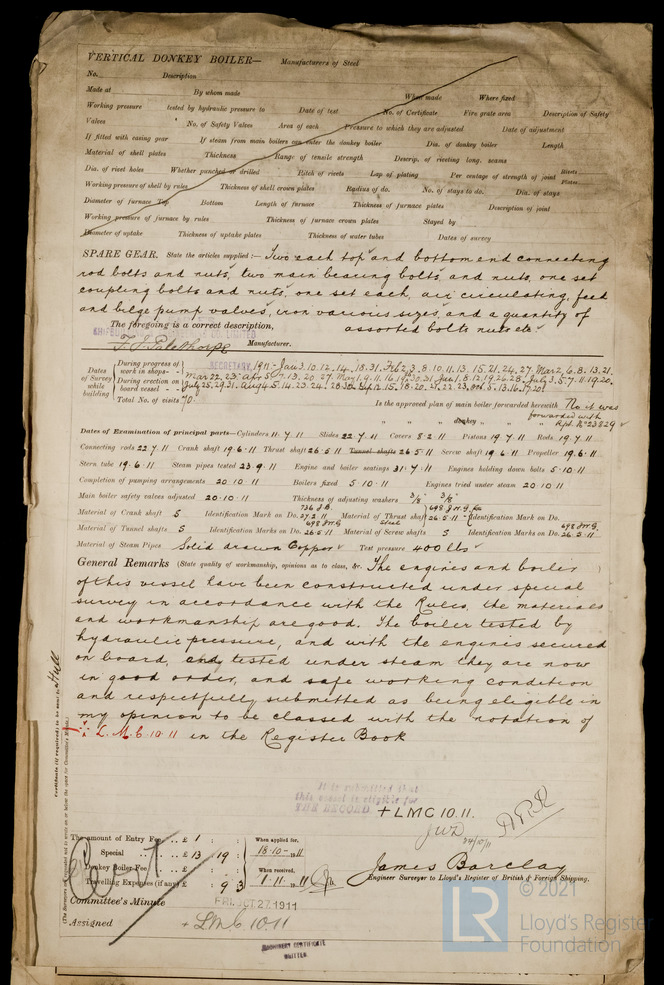 VERTICAL DONKEY BOILER— Manufacturers of Steel
No. Description
Made at By whom made When made Where fixed
Working pressure tested by hydraulic pressure to Date of test No. of Certificate Fire grate area Description of Safety
Valves No. of Safety Valves Area of each Pressure to which they are adjusted Date of adjustment
If fitted with easing gear If steam from main boilers can enter the donkey boiler Dia. of donkey boiler Length
Material of shell plates Thickness Range of tensile strength Descrip. of riveting long. seams
Dia. of rivet holes Whether punched or drilled Pitch of rivets Lap of plating Per centage of strength of joint Rivets Plates
Working pressure of shell by rules Thickness of shell crown plates Radius of do. No. of stays to do. Dia. of stays
Diameter of furnace Top Bottom Length of furnace Thickness of furnace plates Description of joint
Working pressure of furnace by rules Thickness of furnace crown plates Stayed by
Diameter of uptake Thickness of uptake plates Thickness of water tubes Dates of survey
SPARE GEAR. State the articles supplied:— Two each top and bottom end connecting
rod bolts and nuts, two main bearing bolts, and nuts, one set
coupling bolts and nuts, one set each, air circulating, feed
and bilge pump valves, iron various sizes, and a quantity of
assorted bolts nuts etc
The foregoing is a correct description,
Manufacturer.
SECRETARY
Dates of Survey while building
During progress of work in shops- - 1911 - Jan 3. 10. 12. 14. 18. 31. Feb 2. 3. 8. 10. 11. 13. 15. 21. 24. 27. Mar 2. 6. 8. 13. 21.
During erection on board vessel - - -
Total No. of visits 70
Is the approved plan of main boiler forwarded herewith No it was
forwarded with
" " " donkey " " " Rpt. No 23829
Dates of Examination of principal parts—Cylinders 11.7.11 Slides 22.7.11 Covers 8.2.11 Pistons 19.7.11 Rods 19.7.11
Connecting rods 22.7.11 Crank shaft 19.6.11 Thrust shaft 26.5.11 Tunnel shafts 26.5.11 Screw shaft 19.6.11 Propeller 19.6.11
Stern tube 19.6.11 Steam pipes tested 23.9.11 Engine and boiler seatings 31.7.11 Engines holding down bolts 5.10.11
Completion of pumping arrangements 20.10.11 Boilers fixed 5.10.11 Engines tried under steam 20.10.11
Main boiler safety valves adjusted 20.10.11 Thickness of adjusting washers 3/8" 3/8"
Material of Crank shaft S Identification Mark on Do. 27.2.11 Material of Thrust shaft Steel Identification Mark on Do. 26.5.11
Material of Tunnel shafts S Identification Marks on Do. 26.5.11 Material of Screw shafts S Identification Marks on Do. 26.5.11
Material of Steam Pipes Solid drawn Copper Test pressure 400 lbs
General Remarks (State quality of workmanship, opinions as to class, &c. The engines and boiler
of this vessel have been constructed under special
survey in accordance with the Rules, the materials
and workmanship are good. The boiler tested by
hydraulic pressure, and with the engines secured
on board, and tested under steam they are now
in good order, and safe working condition
and respectfully submitted as being eligible in
my opinion to be classed with the notation of
L.M.C. 10.11 in the Register Book
Hull
It is submitted that
this vessel is eligible for
THE RECORD. + LMC 10.11.
The amount of Entry Fee .. £ 1 : :
Special .. .. £ 13 : 19 :
Donkey Boiler Fee .. £ : :
Travelling Expenses (if any) £ : 9 3
When applied for,
18.10.1911
When received,
James Barclay
Engineer Surveyor to Lloyd's Register of British & Foreign Shipping.
Committee's Minute FRI. OCT 27. 1911
Assigned + LMC 10.11
MACHINERY CERTIFICATE
WRITTEN
LR © 2021
Lloyd's Register
Foundation